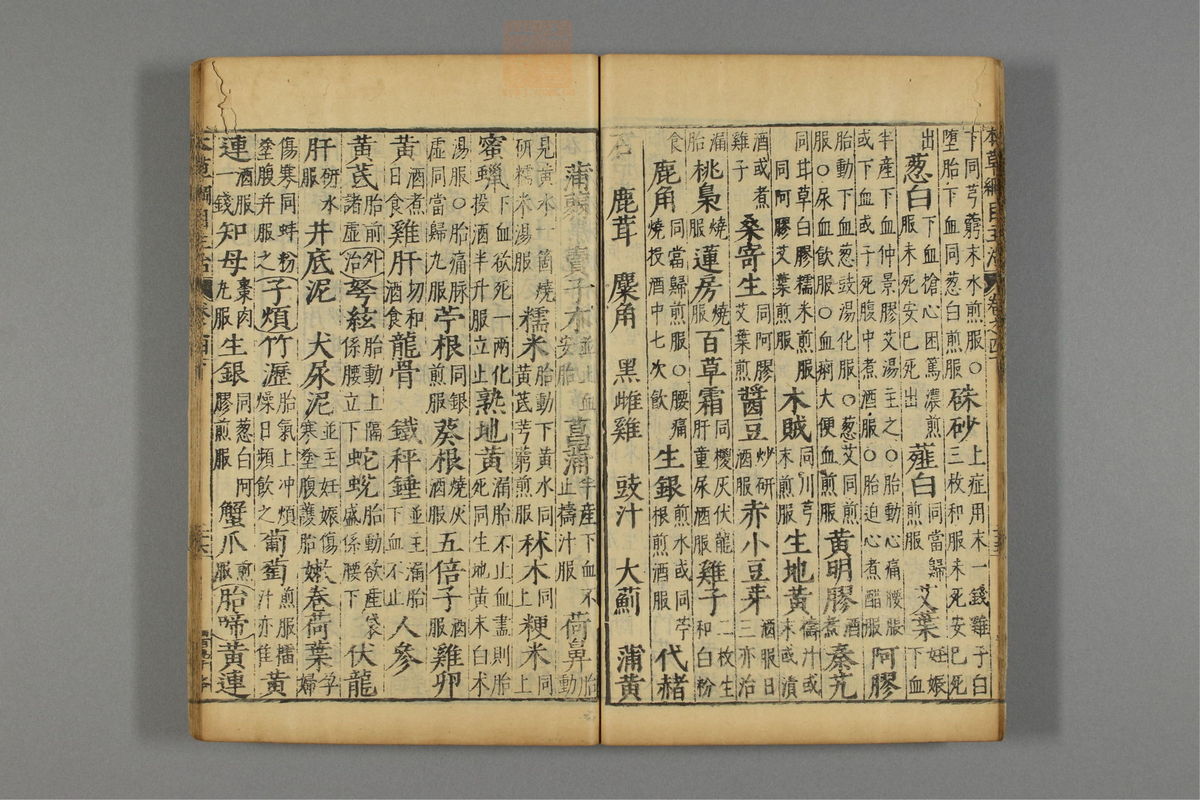 本草綱目主治
下同芎藭末水煎服○
墮胎下血同葱白煎服
硃砂
上症用末一錢雞子白
三枚和服未死安已死
出
葱白
下血搶心困篤濃煎
服未死安已死出
薤白
同當歸
煎服
艾葉
妊娠
下血
半産下血仲景膠艾湯主之○胎動心痛腰脹
或下血或子死腹中煮酒服○胎迫心煮醋服
阿膠
胎動下血葱豉湯化服○葱艾同煎
服○尿血飲服○血痢大便血煎服
黃明膠
酒
煮
秦艽
同甘草白膠糯米煎服
同阿膠艾葉煎服
木賊
同川芎
末煎服
生地黃
擣汁或
末或漬
酒或煮
雞子
桑寄生
同阿膠
艾葉煎
醬豆
炒研
酒服
赤小豆芽
酒服日
三亦治
漏
胎
桃梟
燒
服
蓮房
燒
服
百草霜
同椶灰伏龍
肝童尿酒服
雞子
二枚生
和白粉
食
鹿角
同當歸煎服○腰痛
燒投酒中七次飲
生銀
煎水或同苧
根煎酒服
代赭
石 鹿茸 麋角 黑雌雞 豉汁 大薊 蒲黃
蒲蒻 賣子木
並止血
安胎
菖蒲
半産下血不
止擣汁服
荷鼻
胎
動
見黃水一箇燒
研糯米湯服
糯米
胎動下黃水同
黃芪芎藭煎服
秫米
同
上
粳米
同
上
蜜蠟
下血欲死一兩化
投酒半升服立止
熟地黃
漏胎不止血盡則胎
死同生地黃末白朮
湯服○胎痛脉
虛同當歸丸服
苧根
同銀
煎服
葵根
燒灰
酒服
五倍子
酒
服
雞卵
黃
酒煮
日食
雞肝
切和
酒食
龍骨 鐵秤錘
並主漏胎
下血不止
人參
黃芪
胎前
諸虛
外治
弩絃
胎動上隔
係腰立下
蛇蛻
胎動欲産袋
盛係腰下
伏龍
肝
研水
服
井底泥 犬尿泥
並主妊娠傷
寒塗腹護胎
嫩卷荷葉
孕
婦
傷寒同蚌粉
塗腹并服之
子煩 竹瀝
胎氣上冲煩
燥日頻飲之
葡萄
煎服擂
汁亦佳
黃
連
酒服
一錢
知母
棗肉
丸服
生銀
同葱白阿
膠煎服
蟹爪
煎
服
胎啼 黃連
本草綱目主治